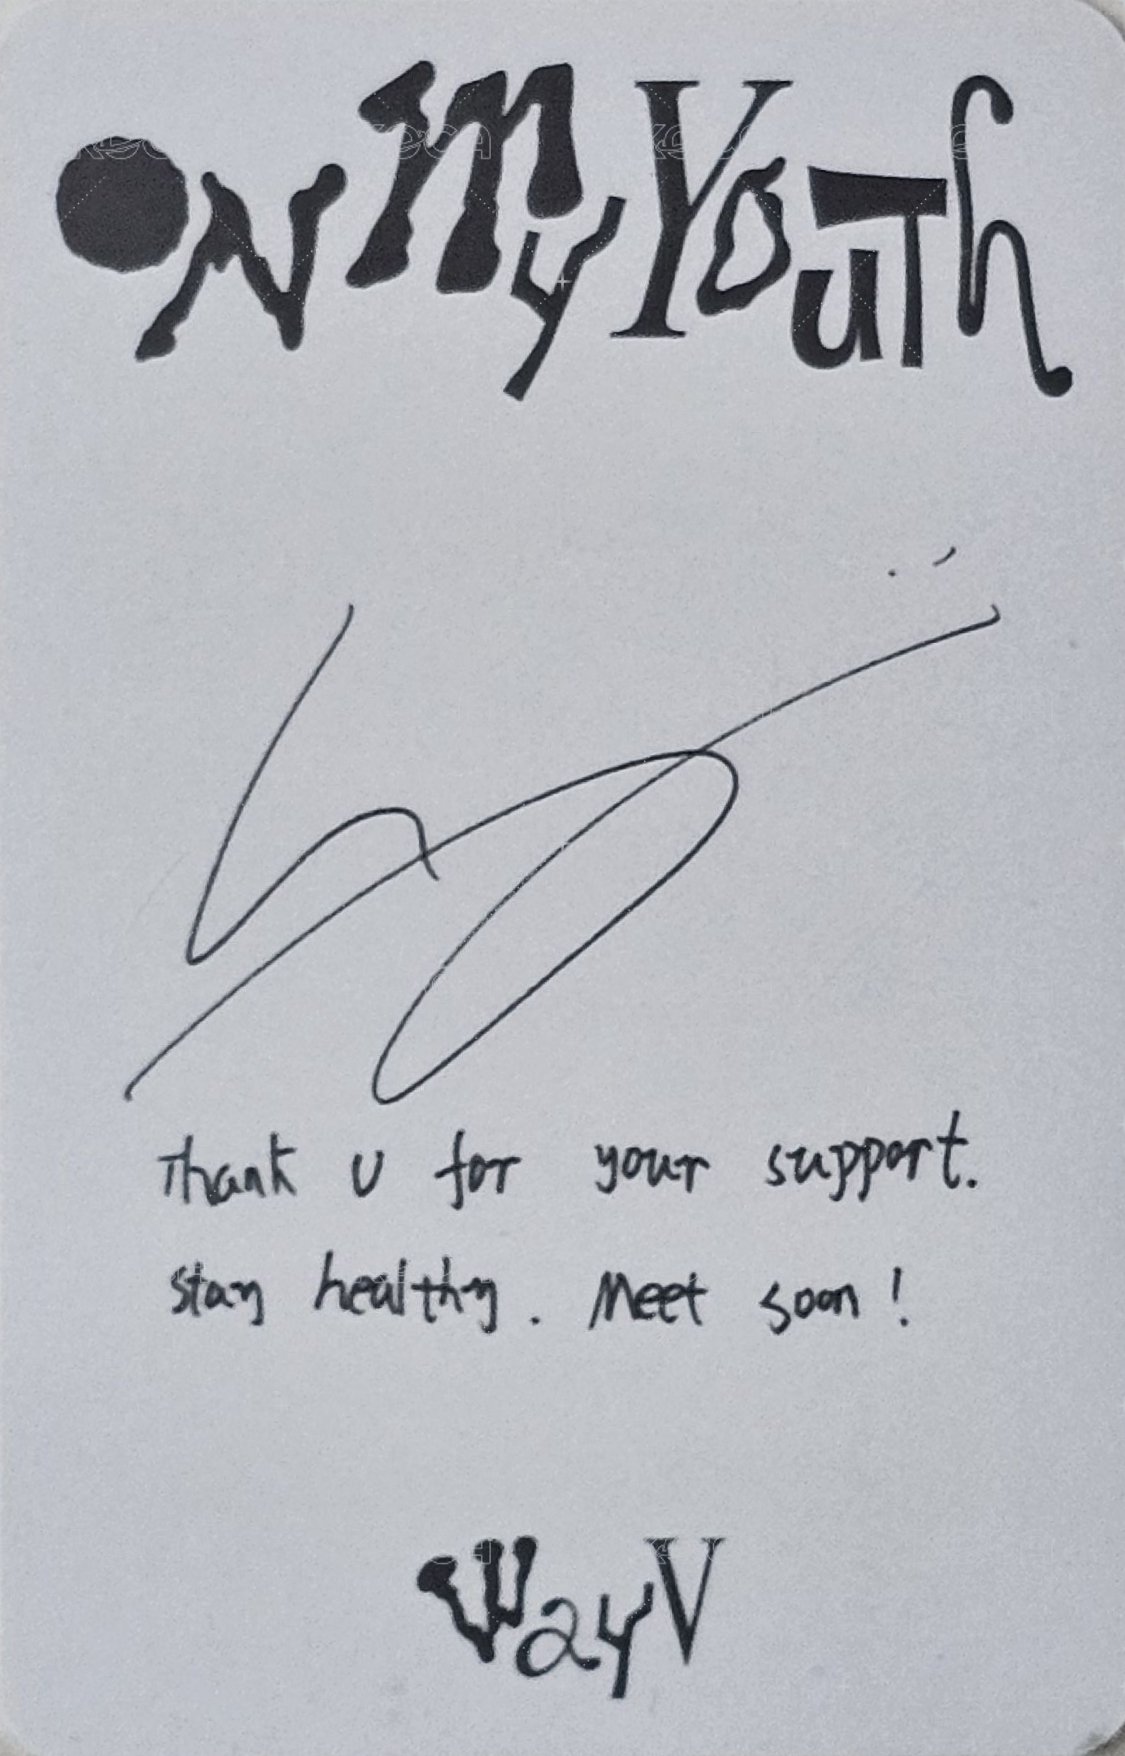 ON MY YOUTH
Thank u for your support.
stay healthy. Meet soon!
WayV